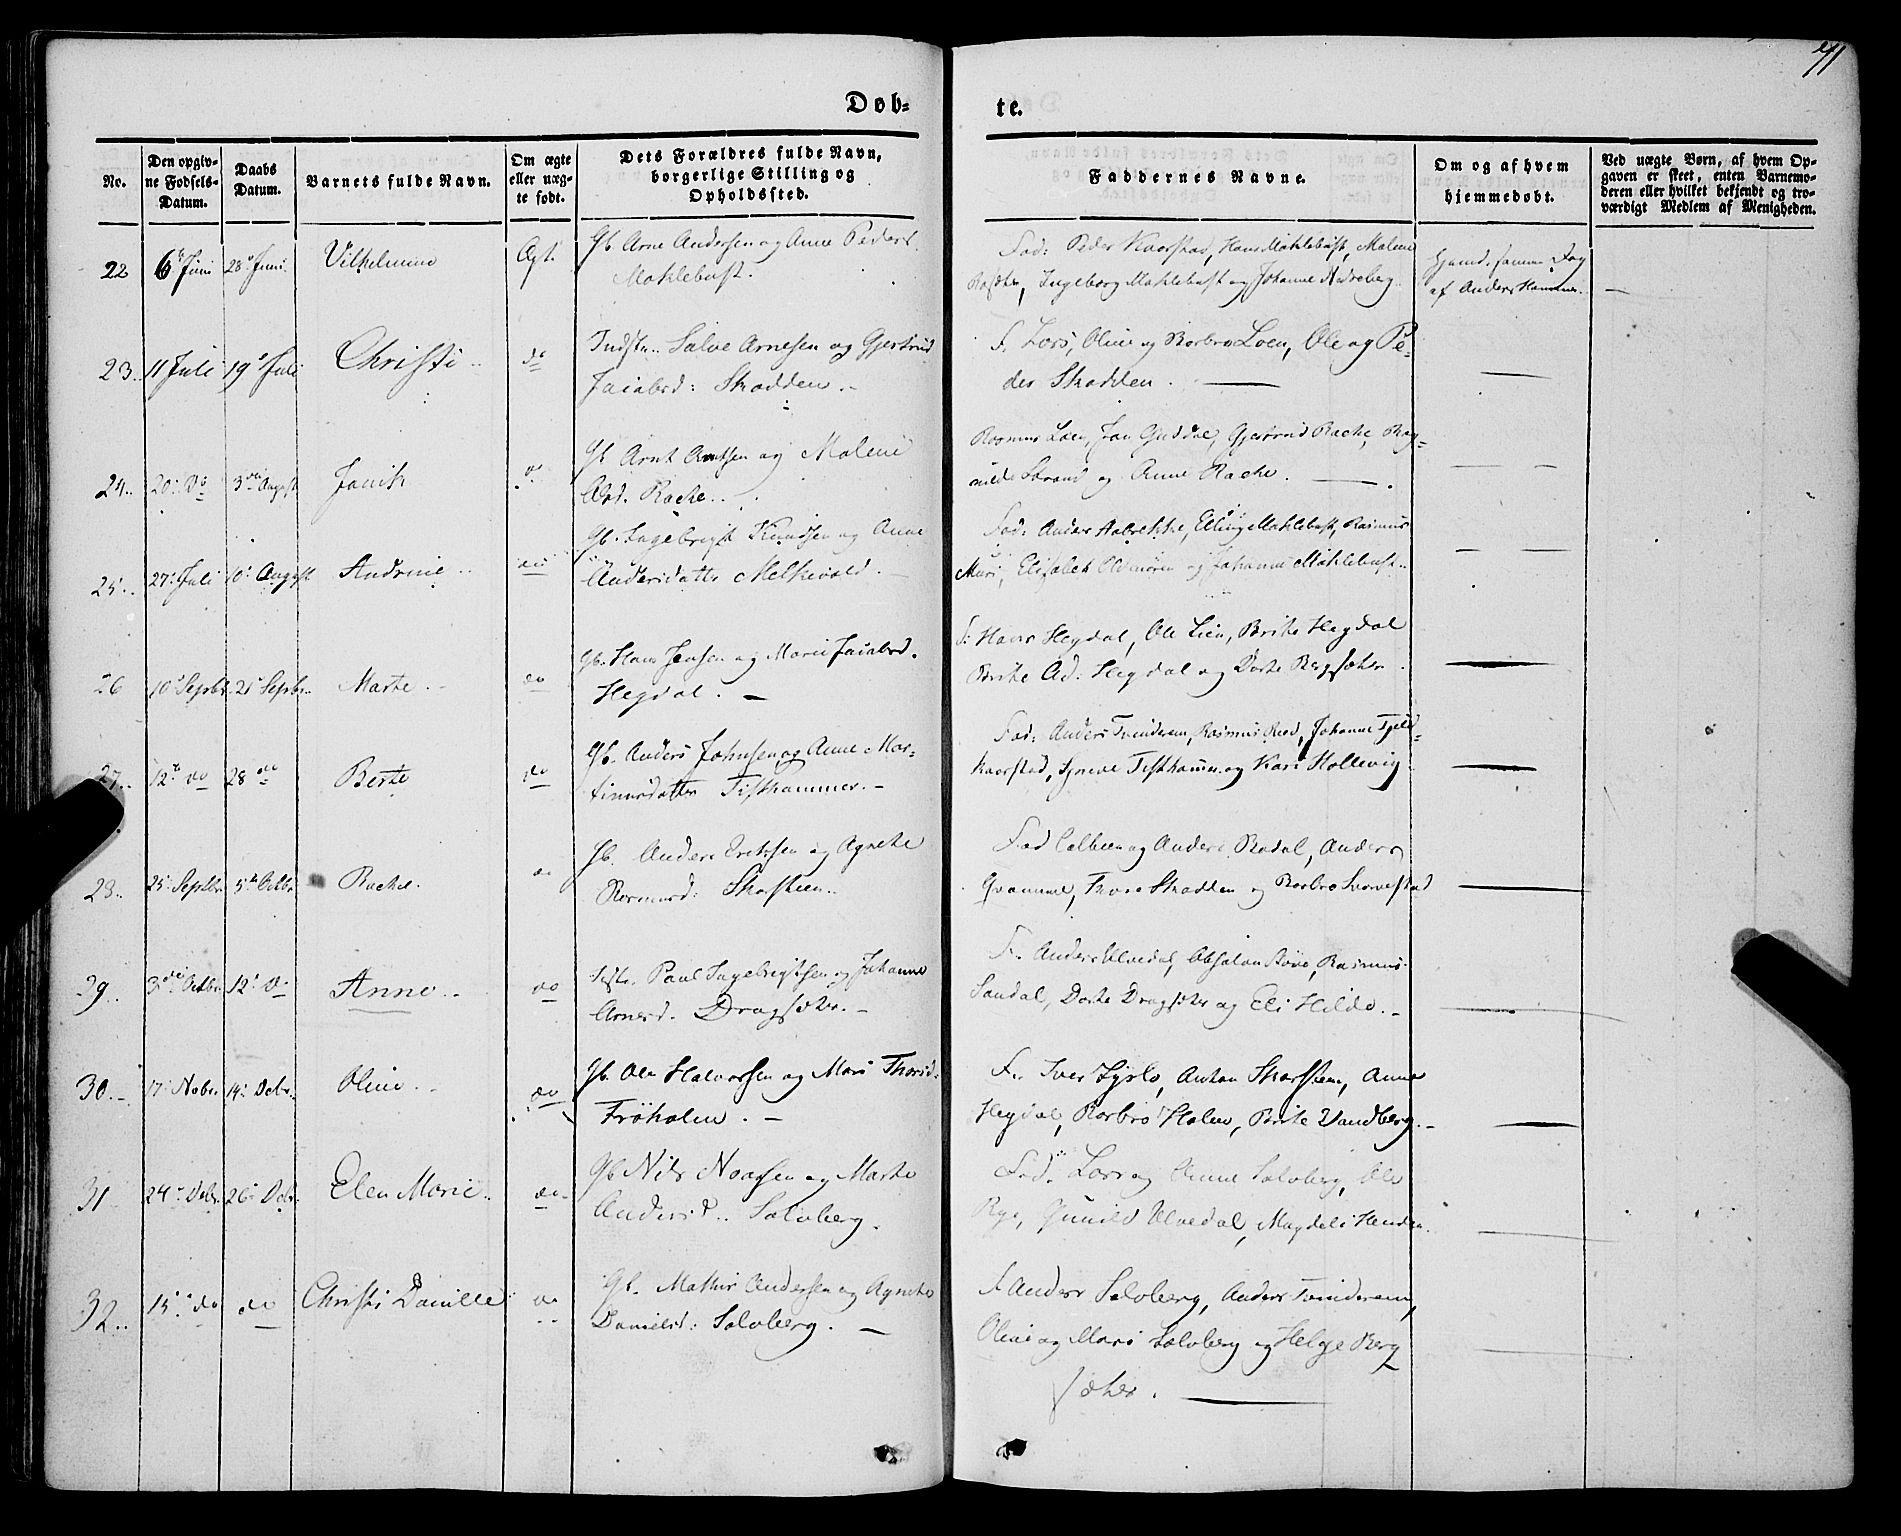 71
Døb-
te.
No.
Den opgiv-
ne Fødsels-
Datum.
Daabs
Datum.
Barnets fulde Navn.
Om ægte
eller uæg-
te født.
Dets Forældres fulde Navn,
borgerlige Stilling og
Opholdssted.
Faddernes Navne.
Om og af hvem
hjemmedøbt.
Ved uægte Børn, af hvem Op-
gaven er skeet, enten Barnemo-
deren eller hvilket bekjendt og tro-
værdigt Medlem af Menigheden.
22 6 Juni 28 Juni Vilhelmine Ægt. Gb. Arne Andersen og Anne Peders
Mahlebust.
Fad: Peder Kaarstad, Hans Mahlebust, Malene
Ingeborg Mahlebust og Johanne
samme Dag
af Anders
23. 11 Juli 19 Juli Christi do Indstr. Salve Arnesen og Gjertrud
Jacobsd: Skadden.
F. Lars, Oline og Barbro Loen, Ole og Pe-
der Skadden.
24. 20 do 3die August do Gb. Arnt Arntsen og Malene
Rache.
Rasmus Loen, Gjertrud Rache, Rag-
nilde Strand og Anne Rache.
25. 27 Juli 10 August Andrine do Gb. Ingebrigt Knudsen og Anne
Andersdatter Melkevold.
Fad: Anders Aabrekke, Elling Mahlebust, Rasmus
Muri, Elisabeth og Johanne Mahlebust.
26 10 Septbr. 21 Septbr. Marte. do Gb. Hans Jensen og Marie Jacobsd.
Hegdal.
F: Hans Hegdal, Ole Lien, Brite Hegdal
Brite Ad: Hegdal og Dorte Bergsæter.
27. 12te do 28 do Berte do Gb. Anders Johnsen og Anne Mar-
tinusdatter Tisthammer.
Fad: Anders Tvinderem, Rasmus Rød, Johanne
Kaarstad, Synneve Tisthamm. og Kari Hollevig
28. 25 Septbr. 5te Octbr. Rachel. do Gb. Anders Ericksen og Agnethe
Rasmusd: Skarsteen.
Fad og Anders Rødal, Anders
Qvamme, Thore Skadden og Barbro
29. 3die Octbr. 12 do Anne do Paul Ingebrigtsen og Johanne
Arnesd. Dragsæter.
F. Anders Ulvedal, Absalon Rasmus
Sandal, Dorte Dragsæter og Eli Hilde.
30. 17 Novbr. 14 Decbr. Oline do Gb. Ole Halvorsen og Mari Thorsd:
Frøholm.
F. Iver Lyslo, Anton Skarsteen, Anne
Hegdal, Barbro Holm, Brite Vandberg.
31 24 Decbr. 26 Decbr. Elen Marie. do Gb. Nils Noassen og Marte
Andersd. Solvberg.
Fad. Lars og Anne Solvberg, Ole
Rye, Gunild Ulvedal, Magdeli
32. 15 do do Christi Danille do Gb. Mathis Andersen og Agnethe
Danielsd: Solvberg.
F Anders Solvberg, Anders Tvinderem,
Oline og Mari Solvberg og Helge Berg
sæter.